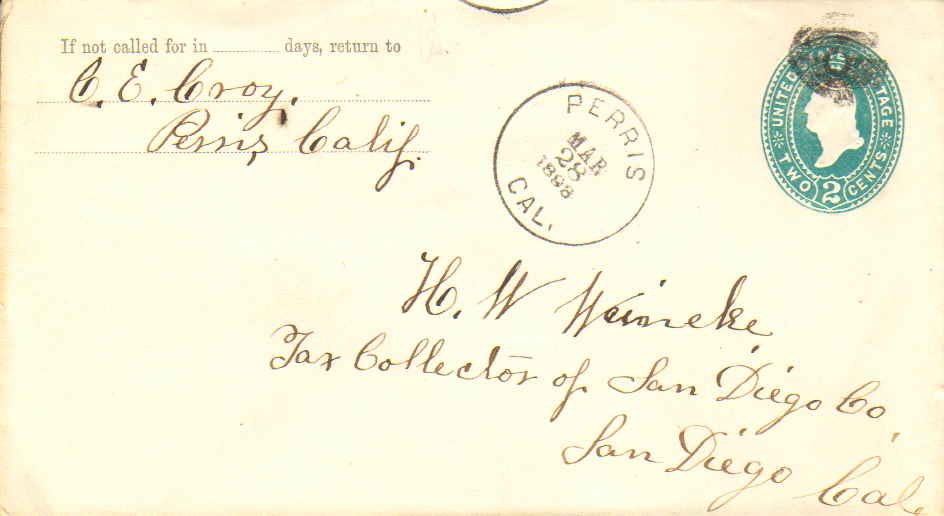 If not called for in ........ days, return to
C. E. Croy,
Perris, Calif.
PERRIS
MAR
28
1893
CAL.
UNITED STATES POSTAGE
TWO 2 CENTS
H. W Weineke
Tax Collector of San Diego Co,
San Diego
Cal.